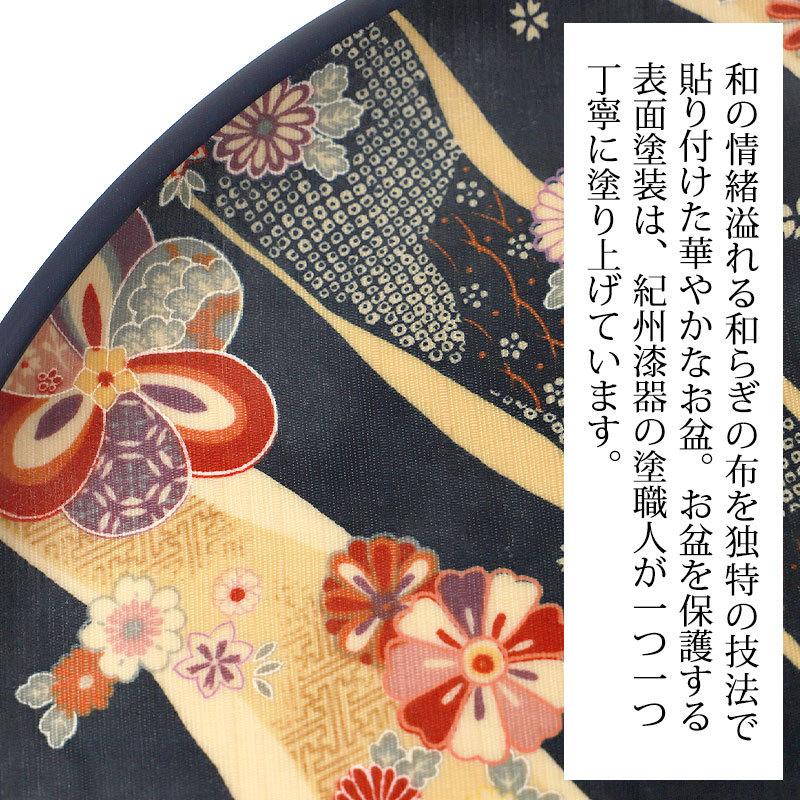 和の情緒溢れる和らぎの布を独特の技法で
貼り付けた華やかなお盆。お盆を保護する
表面塗装は、紀州漆器の塗職人が一つ一つ
丁寧に塗り上げています。